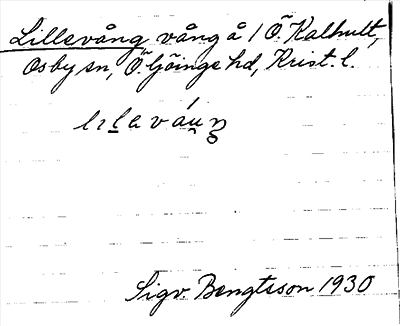 Lillevång vång å 1 Ö. Kalhult,
Osby sn, Ö. Göinge hd, Krist. l.
Sigv. Bengtsson 1930